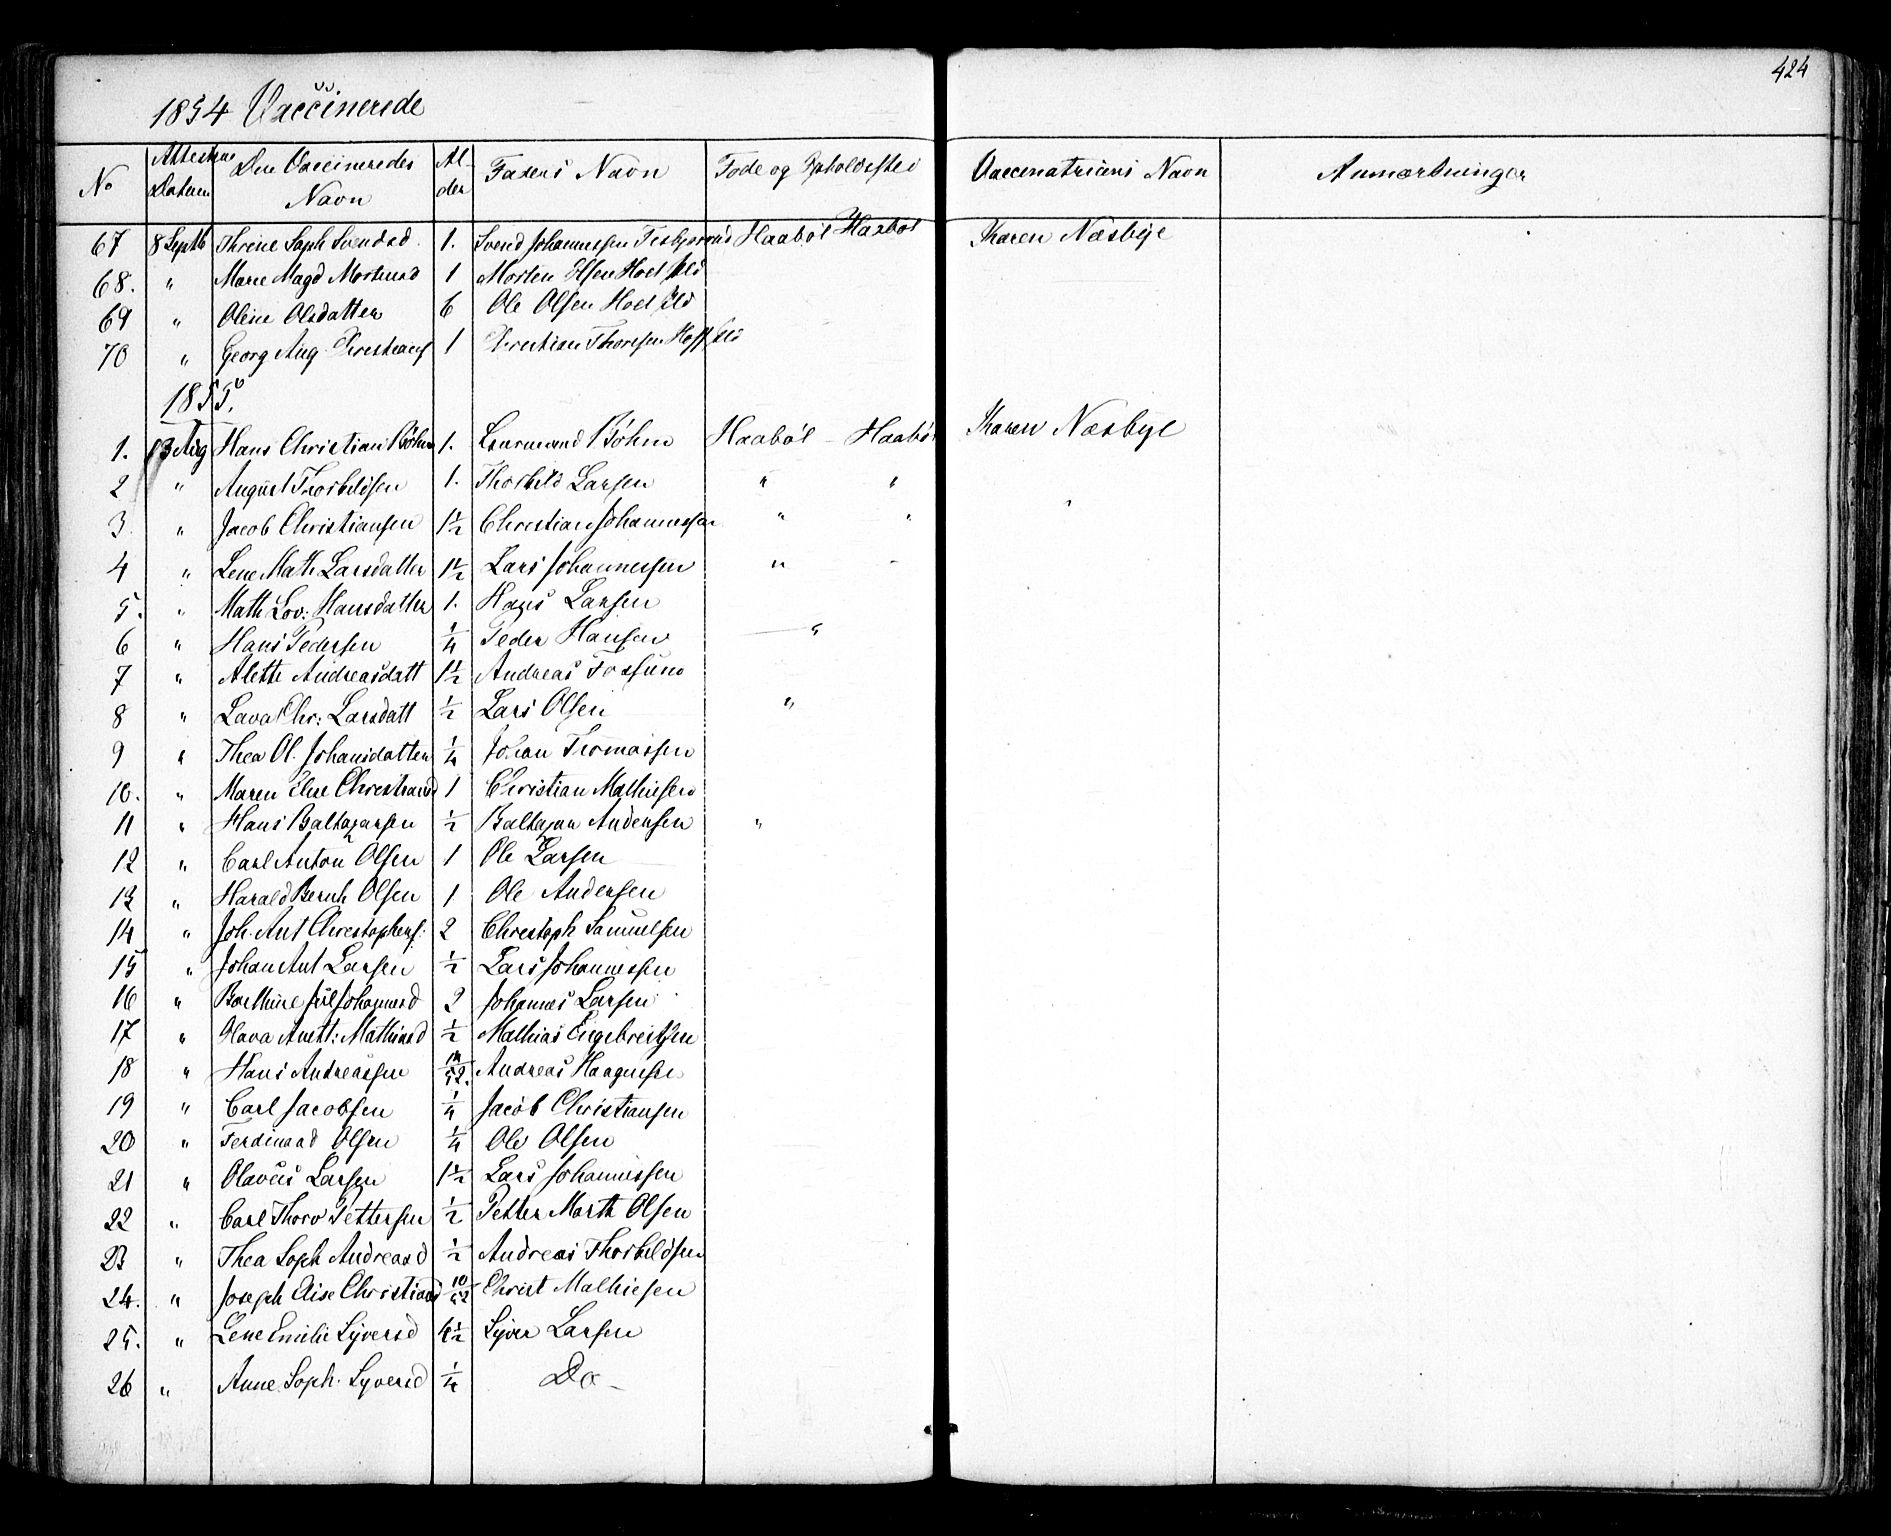 424
1854 Vaccinerede
No Attestens Datum Den Vaccineredes Navn Alder Faders Navn Føde og Opholdssted Vaccinatricens Navn Anmærkninger
67 8 Septb Thrine Soph Svendsd 1. Svend Johannessen Haabøl Haabøl Karen Næsbye
68. " Marie Magd Mortensd 1 Morten Olsen Hoel
69 " Oline Olsdatter 6 Ole Olsen Hoel
70 " Georg Aug Christians 1 Christian Thoresen Hoff
1855.
1. 13 Aug Hans Christian Bøhm 1. Bøhm Haabøl - Haabøl Karen Næsbye
2 " August Thorkildsen 1. Thorkild Larsen " "
3. " Jacob Christiansen 1½ Christian Johannessen " "
4 " Lene Math Larsdatter 1½ Lars Johannessen " "
5. " Math Lov: Hansdatter 1. Hans Larsen
6 " Hans Pedersen ¼ Peder Hansen "
7 " Alette Andreasdatt 1½ Andreas
8 " Lava Chr: Larsdatt ½ Lars Olsen "
9 " Thea Ol. Johansdatter ¼ Johan Thomassen
10. " Maren Elise Christiansd 1 Christian Mathiesen
11 " Hans Baltazarsen ½ Baltazar Andersen "
12 " Carl Anton Olsen 1 Ole Larsen
13 " Harald Bernh Olsen 1 Ole Andersen
14 " Joh. Ant Christophers: 2 Christoph Samuelsen
15 " Johan Ant Larsen ½ Lars Johannessen
16 " Bærthine Jul Johannesd 2 Johannes Larsen
17 " Olava Anett: Mathiasd ½ Mathias Engebretsen
18 " Hans Andreassen 14/52. Andreas Haagensen
19 " Carl Jacobsen ¼ Jacob Christiansen
20 " Ferdinand Olsen ¼ Ole Olsen
21 " Olavus Larsen 1½ Lars Johannessen
22 " Carl Thorv Pettersen ½ Petter Marth Olsen
23 " Thea Soph Andreasd ½ Andreas Thorkildsen
24. " Joseph Elise Christiansd 10/52 Christ Mathiesen
25. " Lene Emilie Syversd 6½ Syver Larsen
26 " Anne Soph. Syversd ¼ Do -